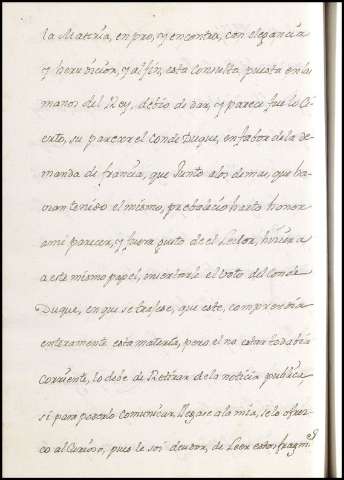 la Materia, en pro, y en contra, con elegancia
y herudicion, y al fin, esta Consulta puesta en las
manos del Rey, debio de dar, y parece fue lo Ci-
erto, su parecer el Conde Duque, en fabor de la de-
manda de francia, que Junto a los demas, que ha-
vian tenido el mismo, prebalecio harto honor
a mi parecer, y fuera gusto de el Letor,
a este mismo papel, insertarle el boto del Conde
Duque, en que se trajese, que este, comprendia
enteramente esta materia, pero el no estar todabia
Corriente, lo debe de Retirar de la noticia publica,
si para poderlo Comunicar, llegase a la mia, se lo ofrez-
co al Curioso, pues le soi deudor, de Leer estos fragm.os